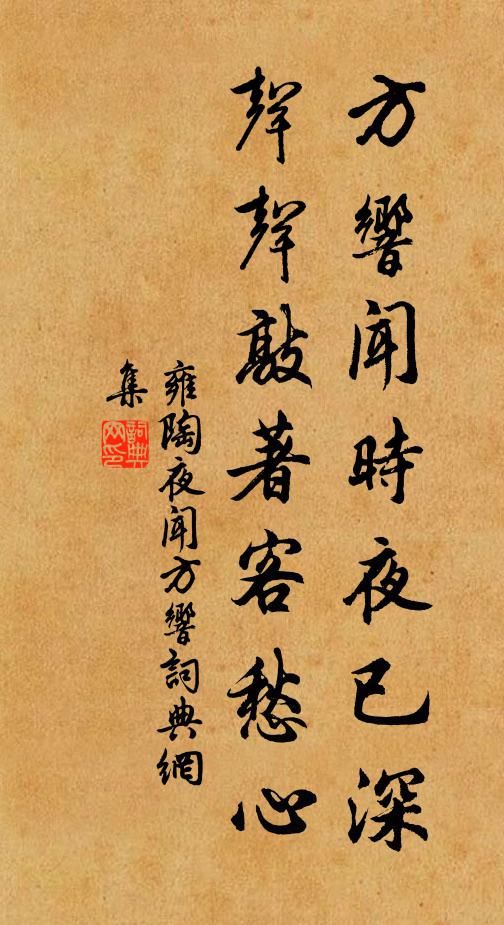 方響聞時夜已深
聲聲敲著客愁心
雍陶夜聞方響詞典網
集
詞典
网印